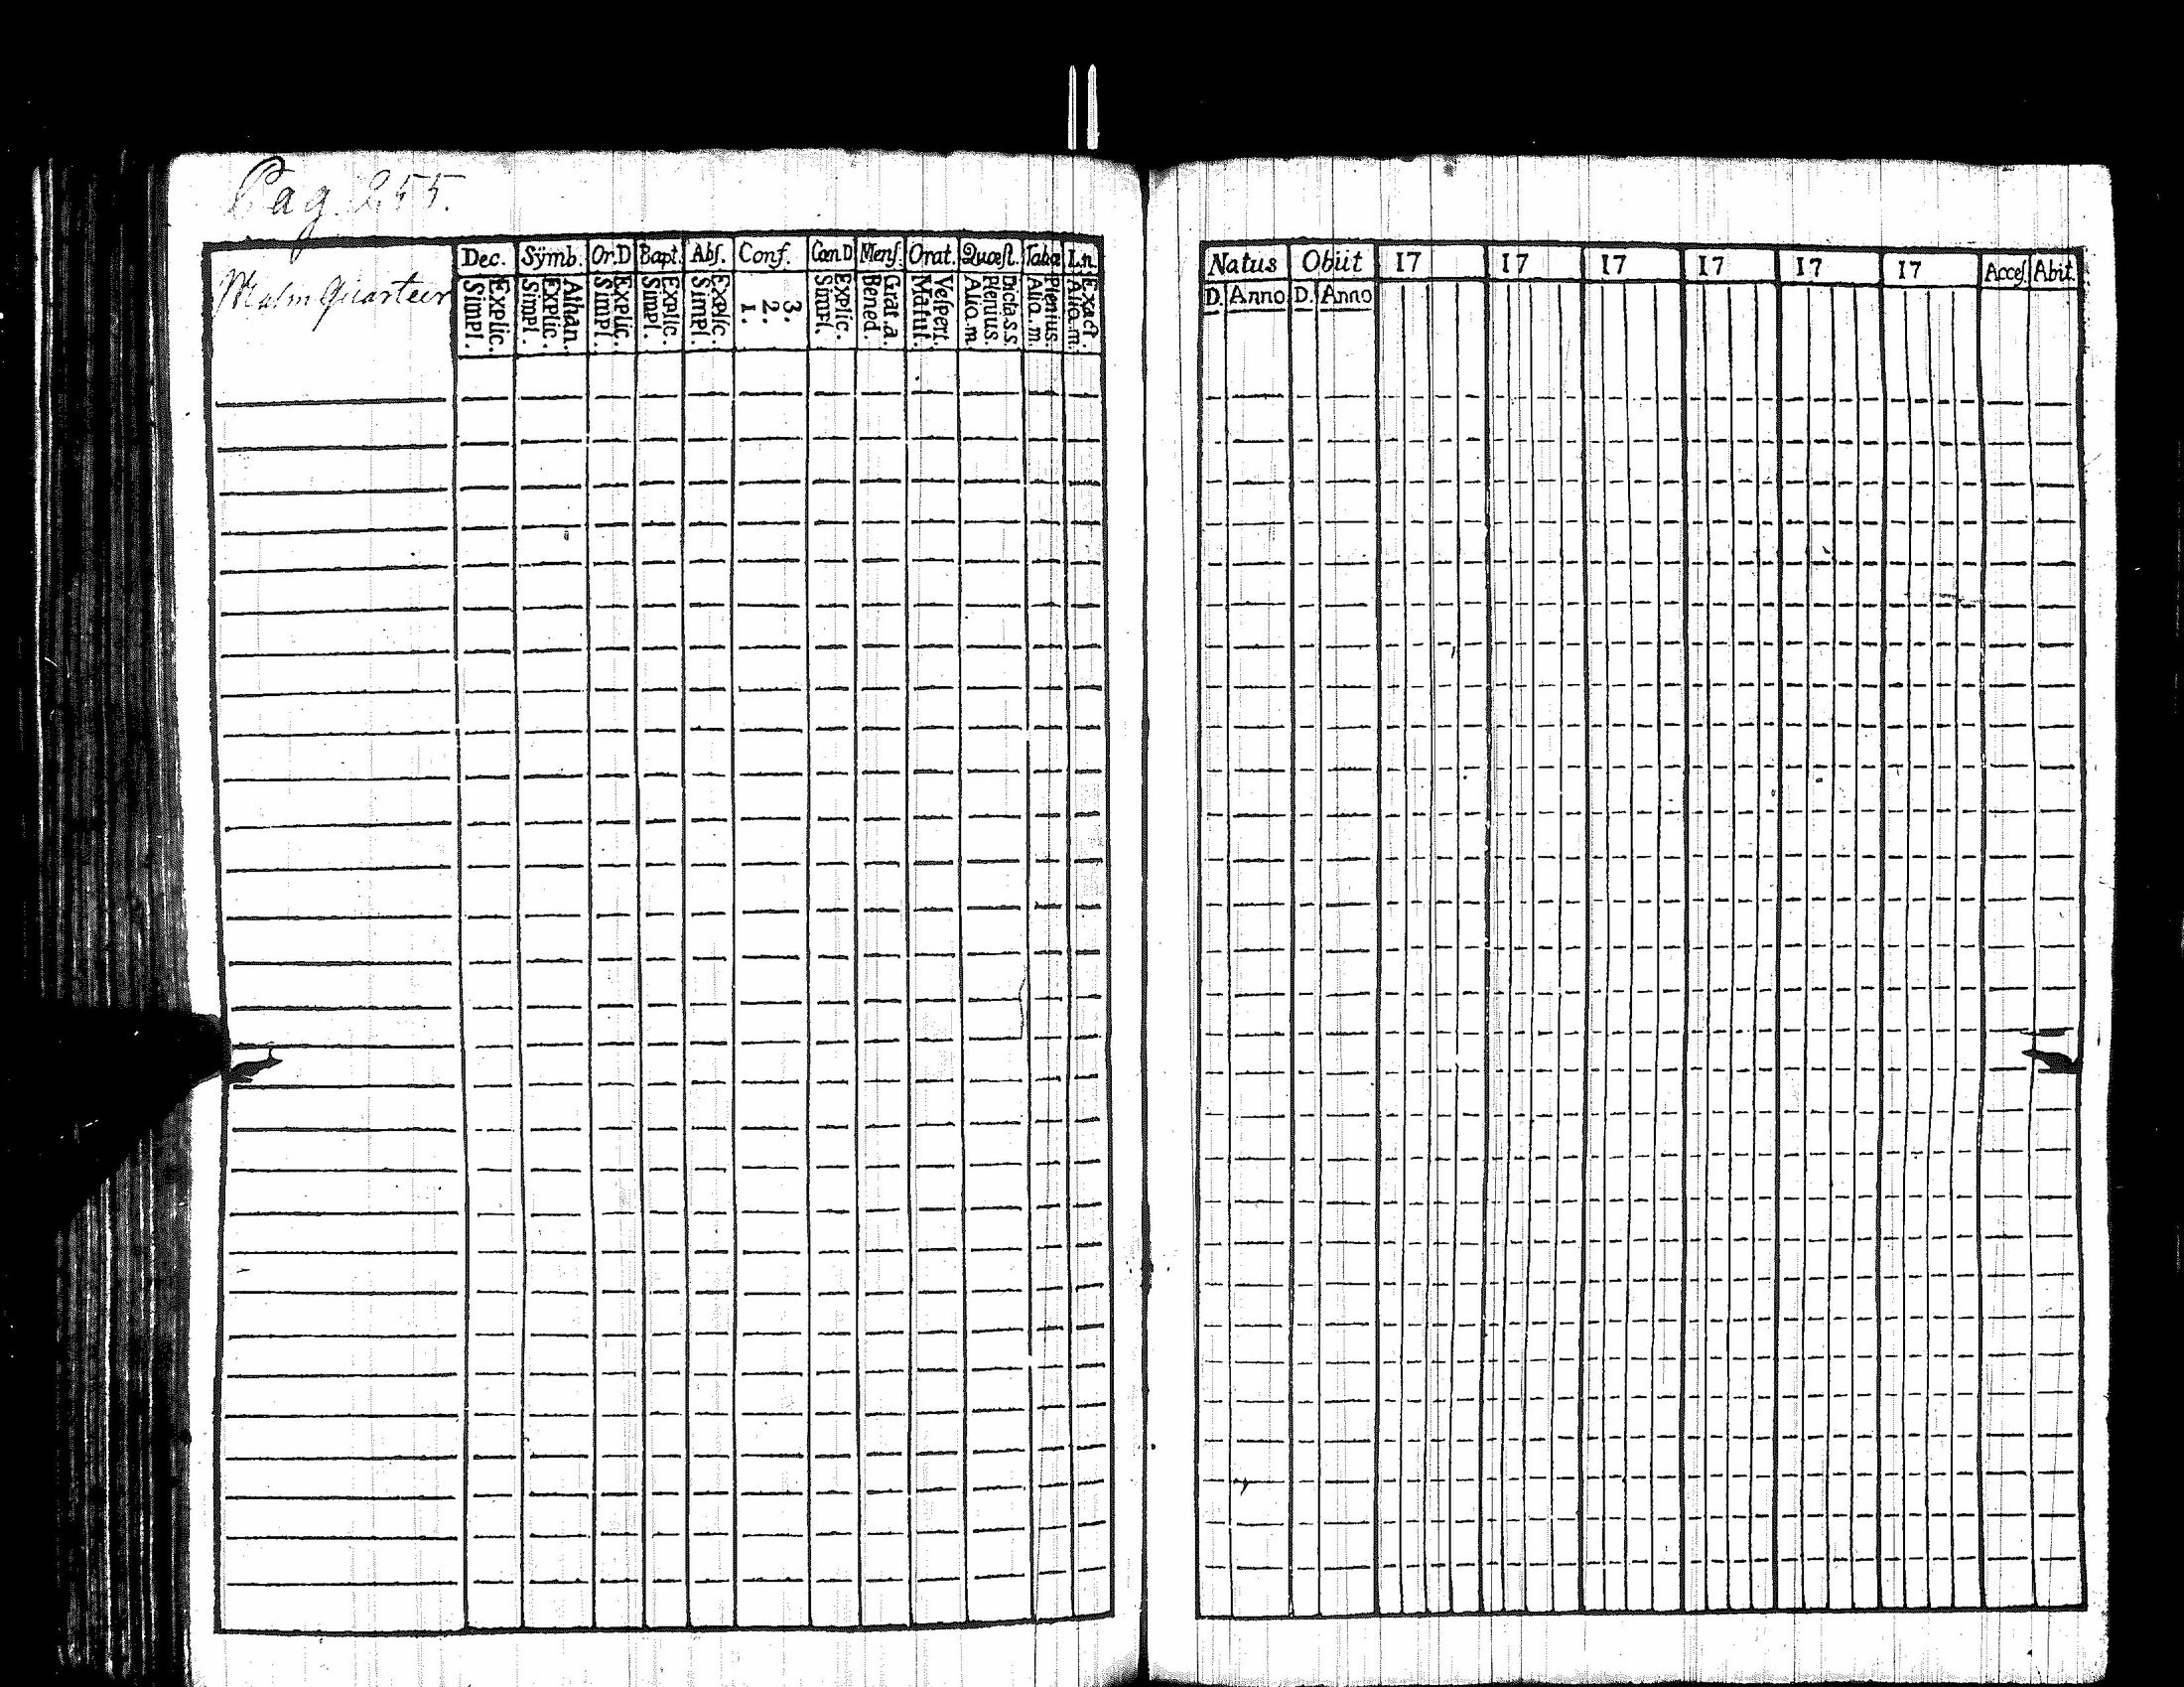 Pag. 255.
Malm Quarteer
Dec. Sÿmb. Or.D Bapt. Abſ. Conf. Cœn.D Menſ. Orat. Quæſt. Tabæ L.n.
Explic. Simpl. Athan. Explic. Simpl. Explic. Simpl. Explic. Simpl. Explic. Simpl. 3. 2. 1. Explic. Simpl. Grat.a. Bened. Veſpert. Matut. Dicta.s.s Plenius. Aliq.m Plenius. Aliq.m. Exact. Aliq.m.
Natus Obiit 17 17 17 17 17 17 Acceſ. Abit.
D. Anno D. Anno